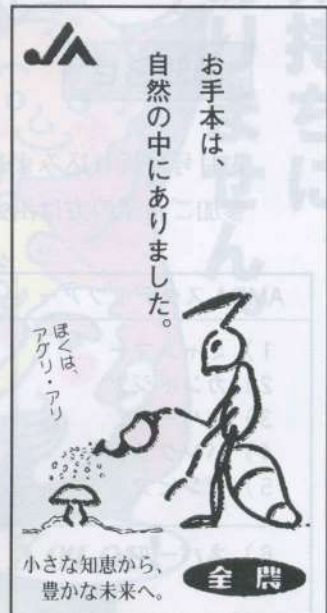 JA
お手本は、
自然の中にありました。
ぼくは、
アグリ・アリ
小さな知恵から、
豊かな未来へ。
全農